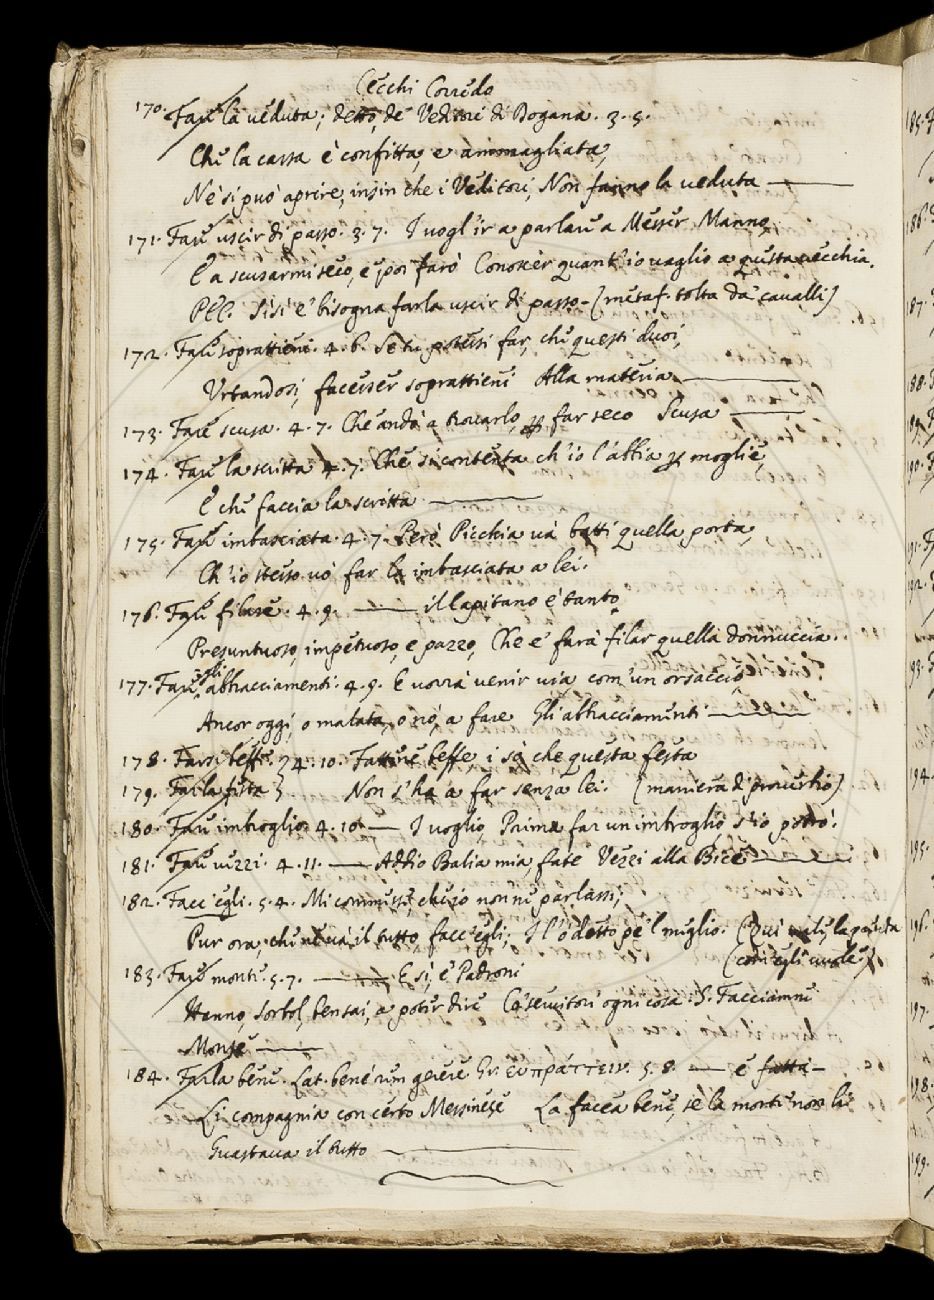 Cecchi Corredo
170. Fare la veduta; detto, de' Veditori di Dogana. 3. 5.
Che la cassa è confitta, e ammagliata,
Nè si può aprire, insin che i Veditori, Non fanno la veduta
171. Fare uscir di passo. 3. 7. I vogl'ir a parlare a Messer Manno,
E a scusarmi seco, e poi farò Conoscer quant'io vaglio a questa vecchia.
Pel. Sì sì e' bisogna farla uscir di passo - (metaf. tolta da' cavalli)
172. Fare soprattieni. 4. 6. Se tu potessi far, che questi duoi,
Urtandosi, facesser soprattieni Alla materia
173. Fare scusa. 4. 7. Che andò a trovarlo, per far seco Scusa
174. Fare la scritta 4. 7. Che si contenta ch'io l'abbia per moglie,
E che faccia la scritta
175. Fare imbasciata. 4. 7. Però Picchia va batti quella porta,
Ch'io stesso vo' far la imbasciata a lei.
176. Fare filare. 4. 9. il Capitano è tanto
Presuntuoso, impetuoso, e pazzo, Che e' farà filar quella donnuccia.
177. Fare gli abbracciamenti. 4. 9. E vorrà venir via com'un orsaccio
Ancor oggi, o malata, o nò, a fare Gli abbracciamenti
178. Farsi beffe. } 4. 10. Fatture beffe, i sò che questa festa
179. Far la festa } Non s'ha a far senza lei. (maniera di proverbio)
180. Fare imbroglio. 4. 10. I voglio, Prima far un imbroglio, s'io potrò.
181. Fare vezzi. 4. 11. Addio Balia mia, fate Vezzi alla Bice
182. Facc'egli. 5. 4. Mi commisse, che io non ne parlassi;
Pur ora, che ne và il tutto facc'egli; I l'ò detto pe'l meglio. (Qui vale, la potenta
(com'egli vuole)
183. Fare monte. 5. 7. E sì, e' Padroni
Hanno, sorbol, ben sai, a poter dire Co' servitori ogni cosa: S. Facciamne
Monte
184. Farla bene. Lat. bene rem gerere Gr. Ευπράττειν. 5. 8. è fatta -
La compagnia con certo Messinese La facea bene, se la morte non li
Guastava il tutto